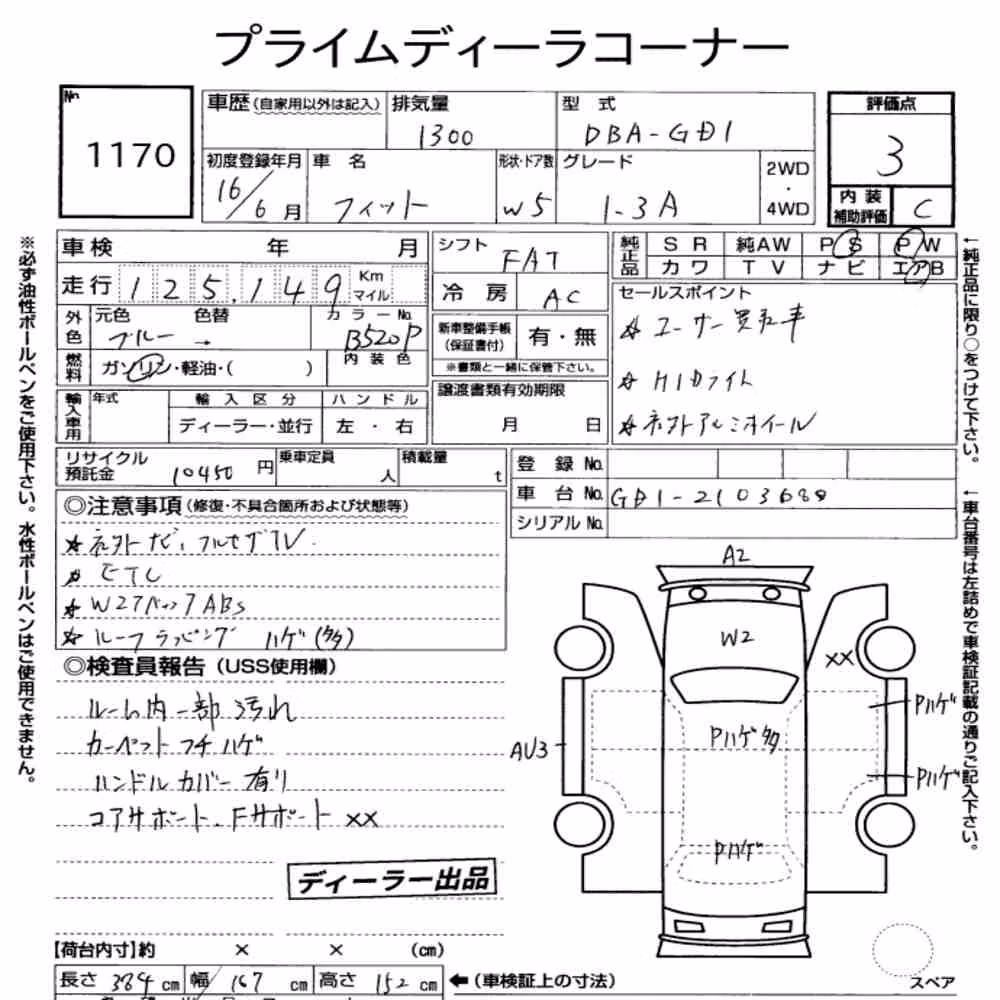 プライムディーラコーナー
No.
1170
車歴 (自家用以外は記入)
排気量
1300
型 式
DBA-GD1
評価点
3
初度登録年月
16/6月
車 名
フィット
形状・ドア数
W5
グレード
1-3A
2WD
・
4WD
内 装
補助評価
C
車検 年 月
走行 125,149 Km
マイル
外色
元色 色替
ブルー →
カラーNo.
B520P
燃料
ガソリン・軽油・( )
内 装 色
輸入車用
年式
輸 入 区 分
ディーラー・並行
ハ ン ド ル
左 ・ 右
シフト
FAT
冷 房
AC
新車整備手帳
(保証書付)
有・無
※書類と一緒に保管下さい。
譲渡書類有効期限
月 日
純正品
S R 純AW P S P W
カワ T V ナビ エアB
セールスポイント
☆ ユーザー買取車
☆ HIDライト
☆ 社外アルミホイール
リサイクル
預託金
10450 円
乗車定員
人
積載量
t
登 録 No.
車 台 No. GD1-2103688
シリアル No.
◎注意事項 (修復・不具合箇所および状態等)
☆ 社外ナビ、フルセグTV.
☆ ETC
☆ Wエアバック ABS
☆ ルーフラッピング ハゲ(多)
◎検査員報告 (USS使用欄)
ルーム内一部汚れ
カーペットフチハゲ
ハンドルカバー有り
コアサポート、Fサポート XX
ディーラー出品
A2
W2
XX
Pハゲ
Pハゲ多
AU3
Pハゲ
Pハゲ
スペア
【荷台内寸】約 × × (cm)
長さ 384 cm 幅 167 cm 高さ 152 cm ←(車検証上の寸法)
※必ず油性ボールペンをご使用下さい。水性ボールペンはご使用できません。
←純正品に限り○をつけて下さい。
←車台番号は左詰めで車検証記載の通りご記入下さい。